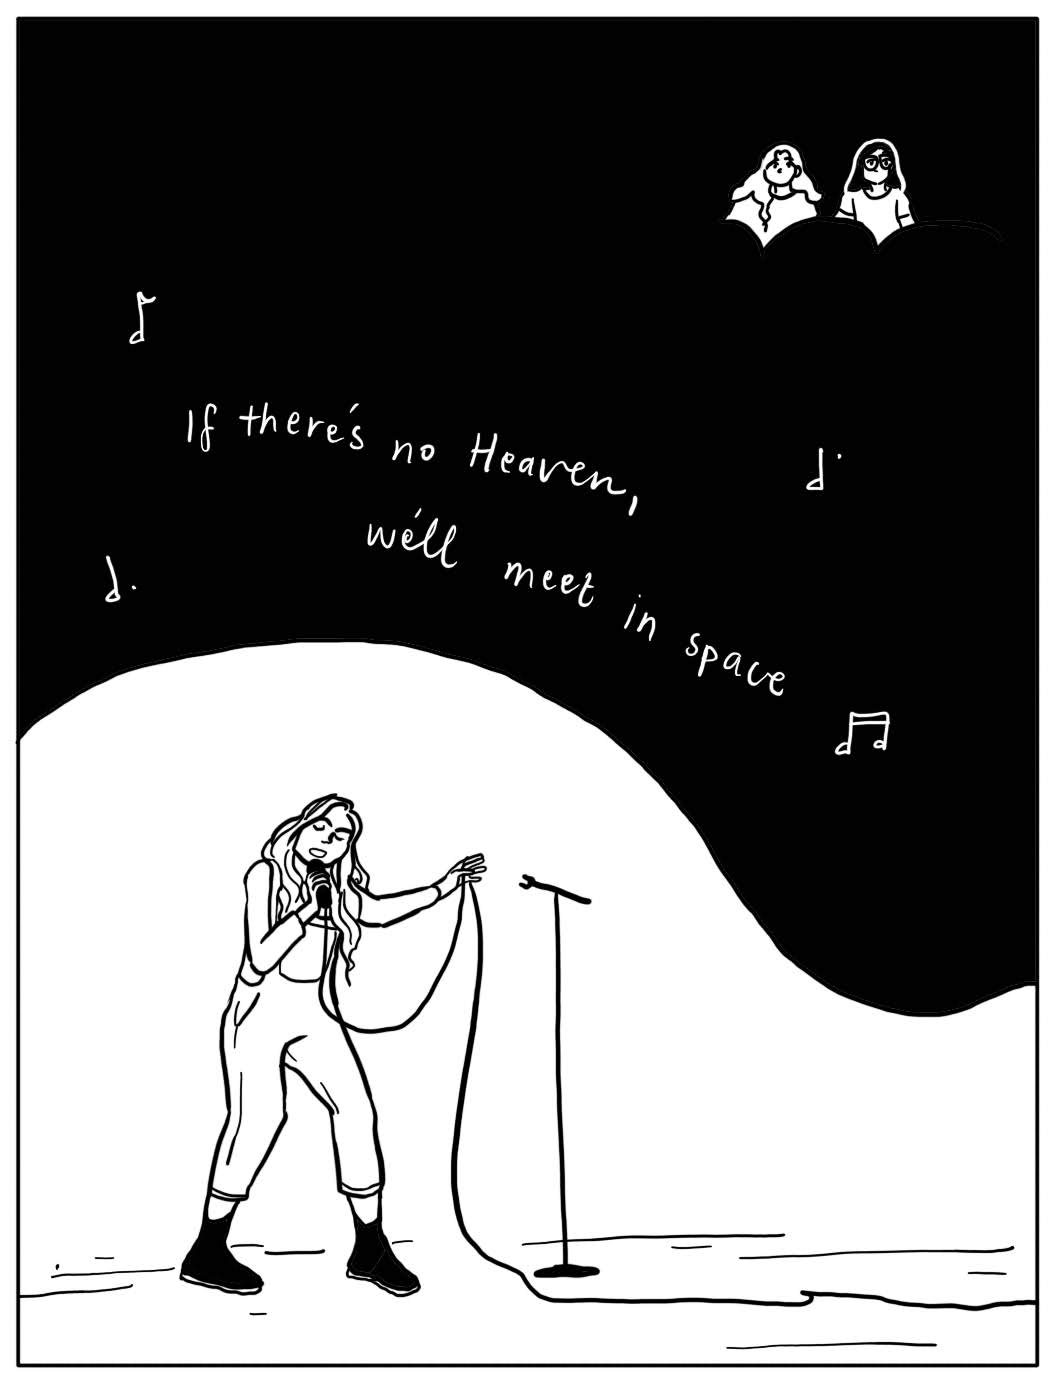 If there's no Heaven,
we'll meet in space